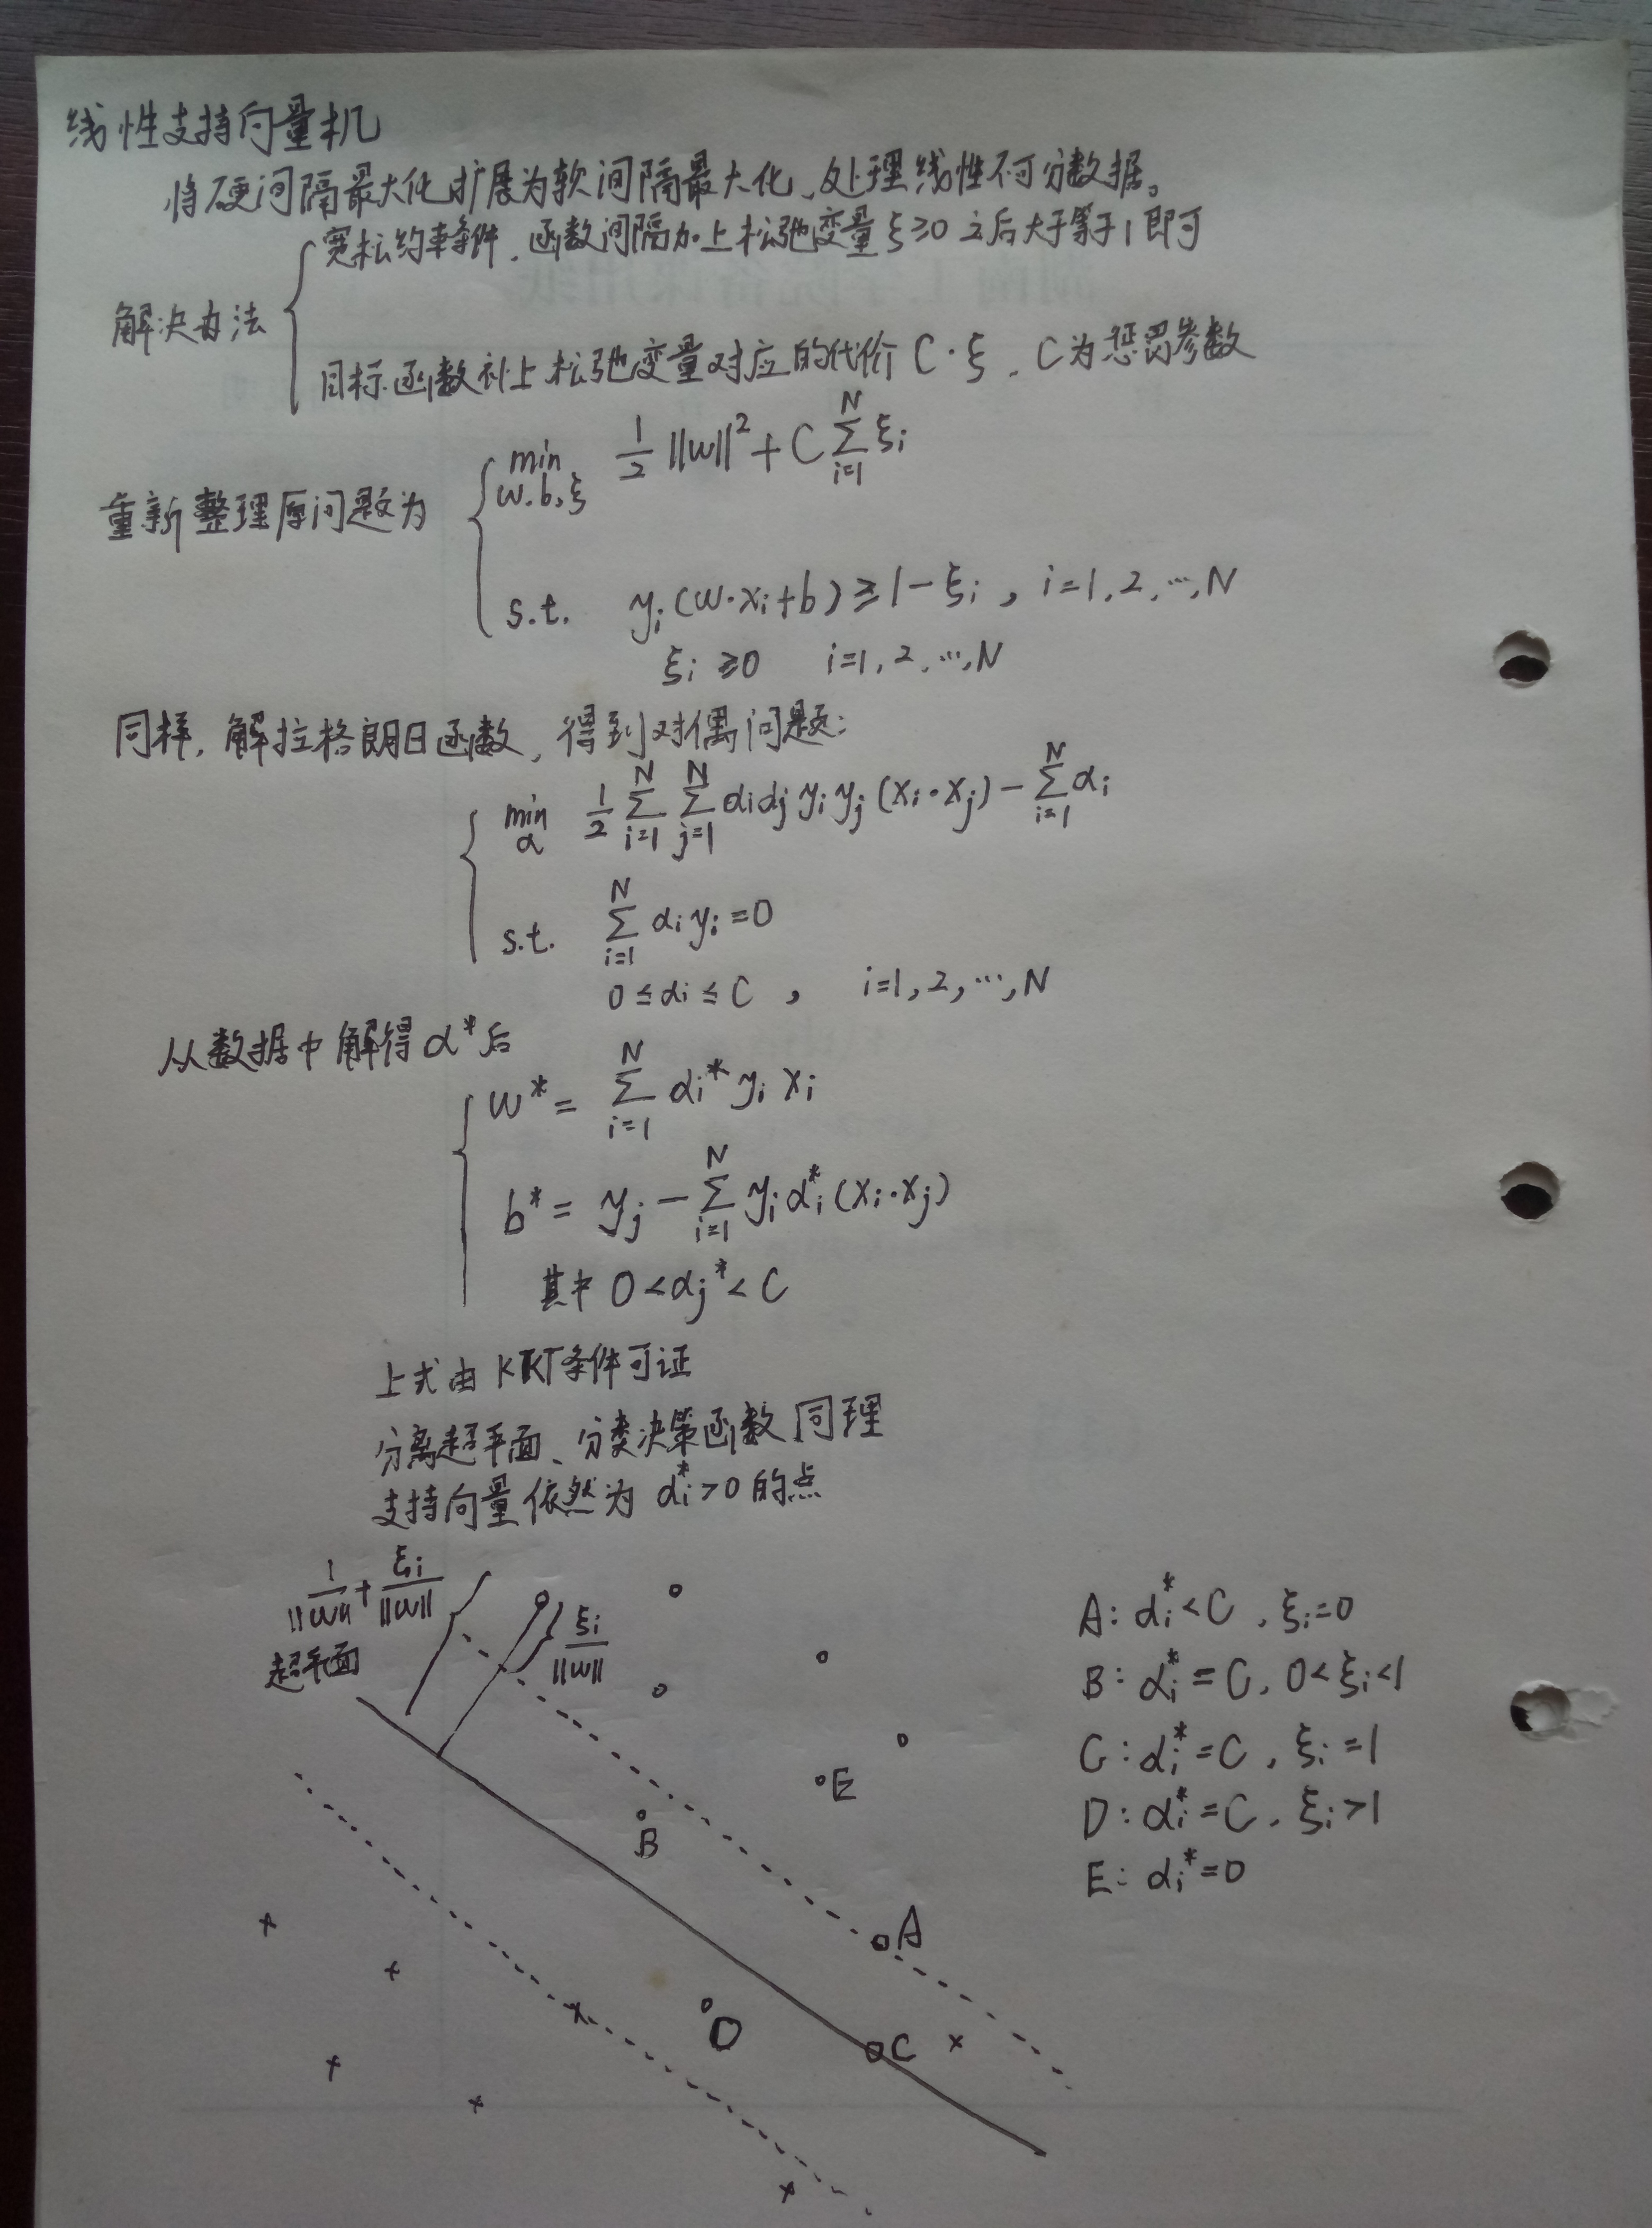 线性支持向量机
将硬间隔最大化扩展为软间隔最大化、处理线性不可分数据。
解决办法
宽松约束条件,函数间隔加上松弛变量ξ≥0之后大于等于1即可
目标函数补上松弛变量对应的代价 C·ξ,C为惩罚参数
重新整理原问题为
min w.b.ξ 1/2 ||w||² + C Σ_{i=1}^{N} ξi
s.t. yi(w·xi+b) ≥ 1-ξi , i=1,2,…,N
ξi ≥0 i=1,2,…,N
同样,解拉格朗日函数,得到对偶问题:
min α 1/2 Σ_{i=1}^{N} Σ_{j=1}^{N} αiαj yi yj (xi·xj) - Σ_{i=1}^{N} αi
s.t. Σ_{i=1}^{N} αi yi =0
0≤αi≤C , i=1,2,…,N
从数据中解得α*后
w* = Σ_{i=1}^{N} αi* yi xi
b* = yj - Σ_{i=1}^{N} yi αi* (xi·xj)
其中 0<αj*<C
上式由KKT条件可证
分离超平面、分类决策函数同理
支持向量依然为 αi*>0 的点
1/||w|| + ξi/||w||
超平面
ξi/||w||
E
B
A
D
C
A: αi*<C , ξi=0
B: αi*=C, 0<ξi<1
C: αi*=C , ξi=1
D: αi*=C , ξi>1
E: αi*=0